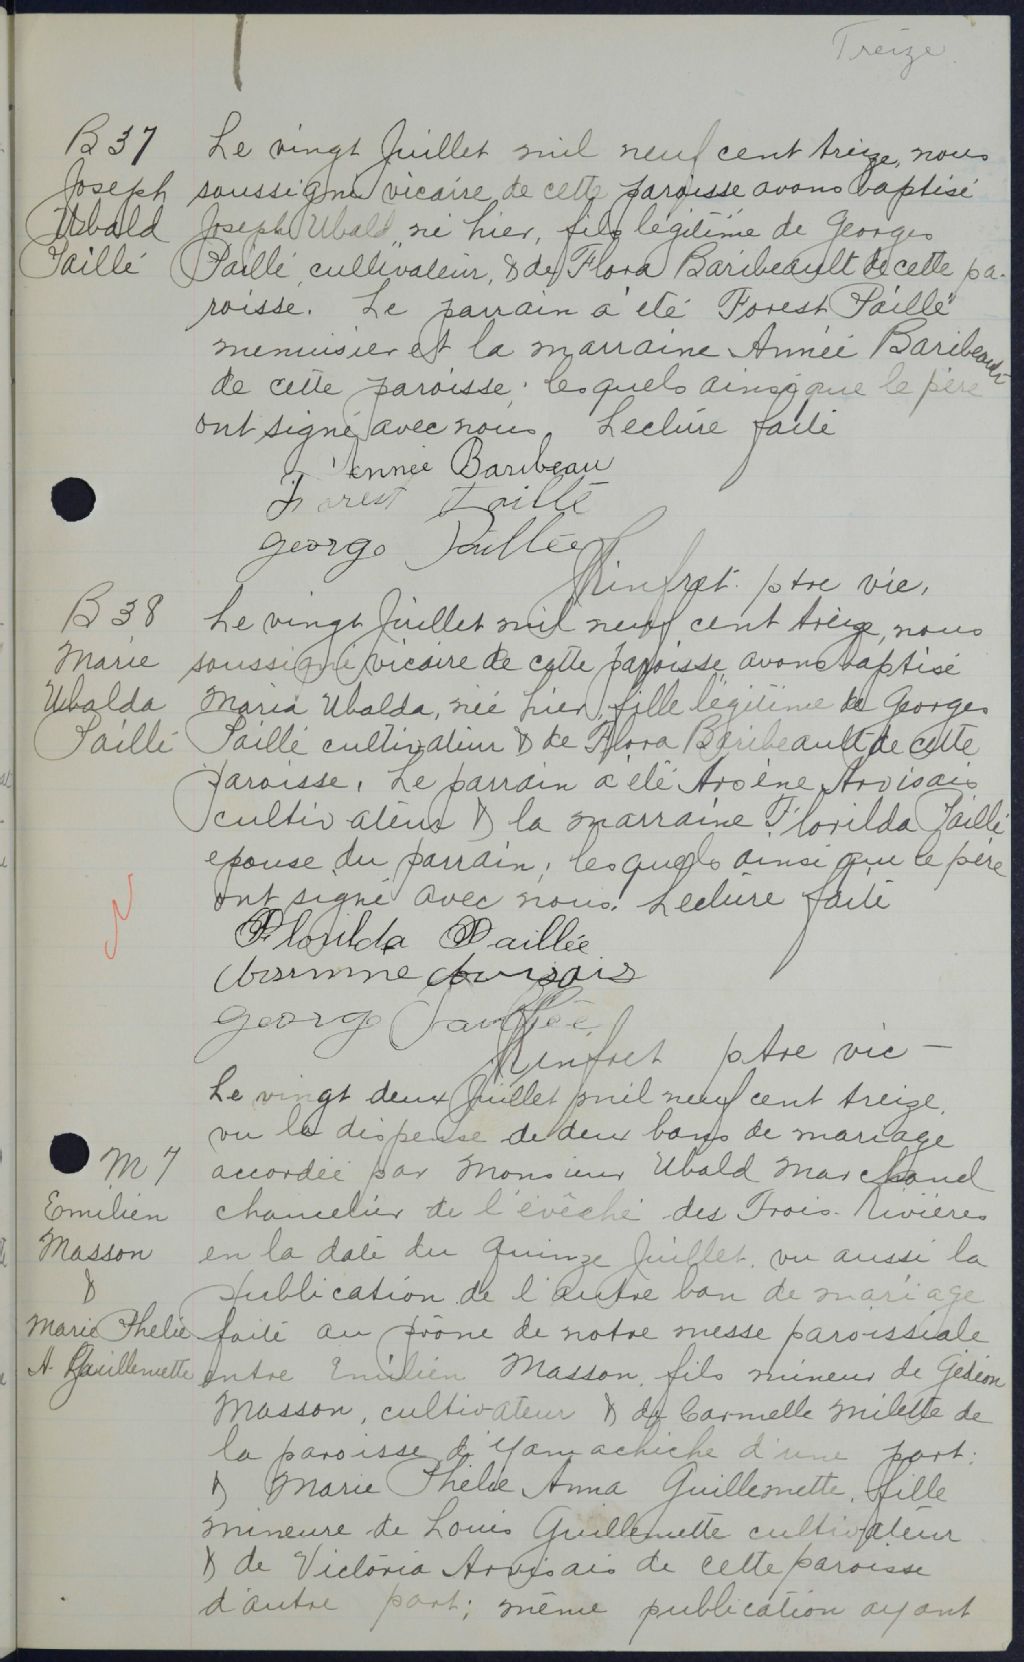 Treize
B 37
Joseph
Ubald
Paillé
Le vingt Juillet mil neuf cent treize, nous
soussigné vicaire de cette paroisse avons baptisé
Joseph Ubald né hier, fils légitime de Georges
Paillé cultivateur, & de Flora Baribeault de cette pa-
roisse. Le parrain a été Forest Paillé
menuisier et la marraine Année Baribeault
de cette paroisse; lesquels ainsi que le père
ont signé avec nous. Lecture faite
Année Baribeau
Forest Paillé
George Paillée
Rinfret ptre vic.
B 38
Marie
Ubalda
Paillé
Le vingt Juillet mil neuf cent treize, nous
soussigné vicaire de cette paroisse avons baptisé
Maria Ubalda, née hier, fille légitime de Georges
Paillé cultivateur & de Flora Baribeault de cette
paroisse. Le parrain a été Arsène Arvisais
cultivateur & la marraine Florilda Paillé
epouse du parrain; lesquels ainsi que le père
ont signé avec nous. Lecture faite
Florilda Paillée
George Paillée
Rinfret ptre vic –
M 7
Emilien
Masson
&
Marie Phelie
A. Guillemette
Le vingt deux Juillet mil neuf cent treize,
vu la dispense de deux bans de mariage
accordée par Monsieur Ubald Marchand
chancelier de l'évêché des Trois-Rivières
en la date du quinze Juillet, vu aussi la
publication de l'autre ban de mariage
faite au prône de notre messe paroissiale
entre Emilien Masson, fils mineur de Gédéon
Masson, cultivateur & de Carmelle Milette de
la paroisse d'Yamachiche d'une part;
& Marie Phelie Anna Guillemette, fille
mineure de Louis Guillemette cultivateur
& de Victoria Arvisais de cette paroisse
d'autre part; même publication ayant